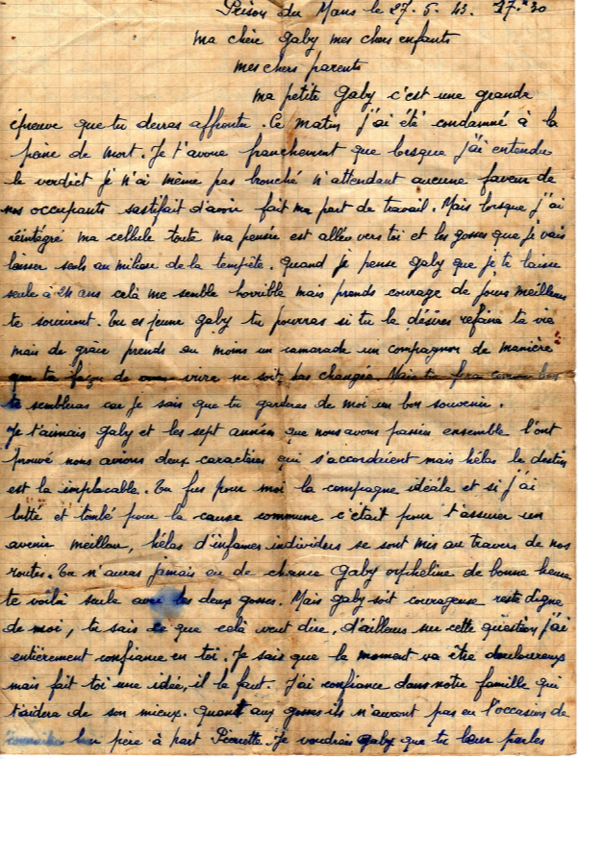 Prison du Mans le 27.5.43. 17.h30
ma chère gaby mes chers enfants
mes chers parents
ma petite Gaby c'est une grande
épreuve que tu devras affronter. Ce matin j'ai été condamné à la
peine de mort. Je t'avoue franchement que lorsque j'ai entendu
le verdict je n'ai même pas bronché n'attendant aucune faveur de
nos occupants sastifait d'avoir fait ma part de travail. Mais lorsque j'ai
réintégré ma cellule toute ma pensée est allée vers toi et les gosses que je vais
laisser seuls au milieu de la tempête. Quand je pense Gaby que je te laisse
seule à 24 ans celà me semble horrible mais prends courage de jours meilleurs
te souriront. Tu es jeune Gaby tu pourras si tu le désires refaire ta vie
mais de grâce prends au moins un camarade un compagnon de manière
que ta façon de vivre ne soit pas changée. Mais tu feras comme bon
te semblera car je sais que tu garderas de moi un bon souvenir.
Je t'aimais Gaby et les sept années que nous avons passées ensemble l'ont
prouvé nous avions deux caractères qui s'accordaient mais hélas le destin
est là implacable. Tu fus pour moi la compagne idéale et si j'ai
lutté et tombé pour la cause commune c'était pour t'assurer un
avenir meilleur, hélas d'infames individus se sont mis au travers de nos
routes. Tu n'auras jamais eu de chance Gaby orpheline de bonne heure
te voilà seule avec les deux gosses. Mais gaby soit courageuse reste digne
de moi, tu sais ce que celà veut dire, d'ailleurs sur cette question j'ai
entièrement confiance en toi. Je sais que le moment va être douloureux
mais fait toi une idée, il le faut. J'ai confiance dans notre famille qui
t'aidera de son mieux. Quant aux gosses ils n'auront pas eu l'occasion de
connaitre leur père à part Pierrette. Je voudrais gaby que tu leur parles